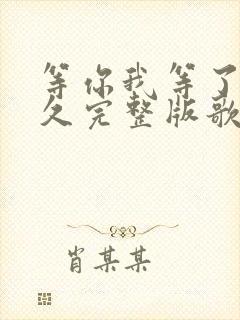 等你我等了
久完整版歌
肖某某